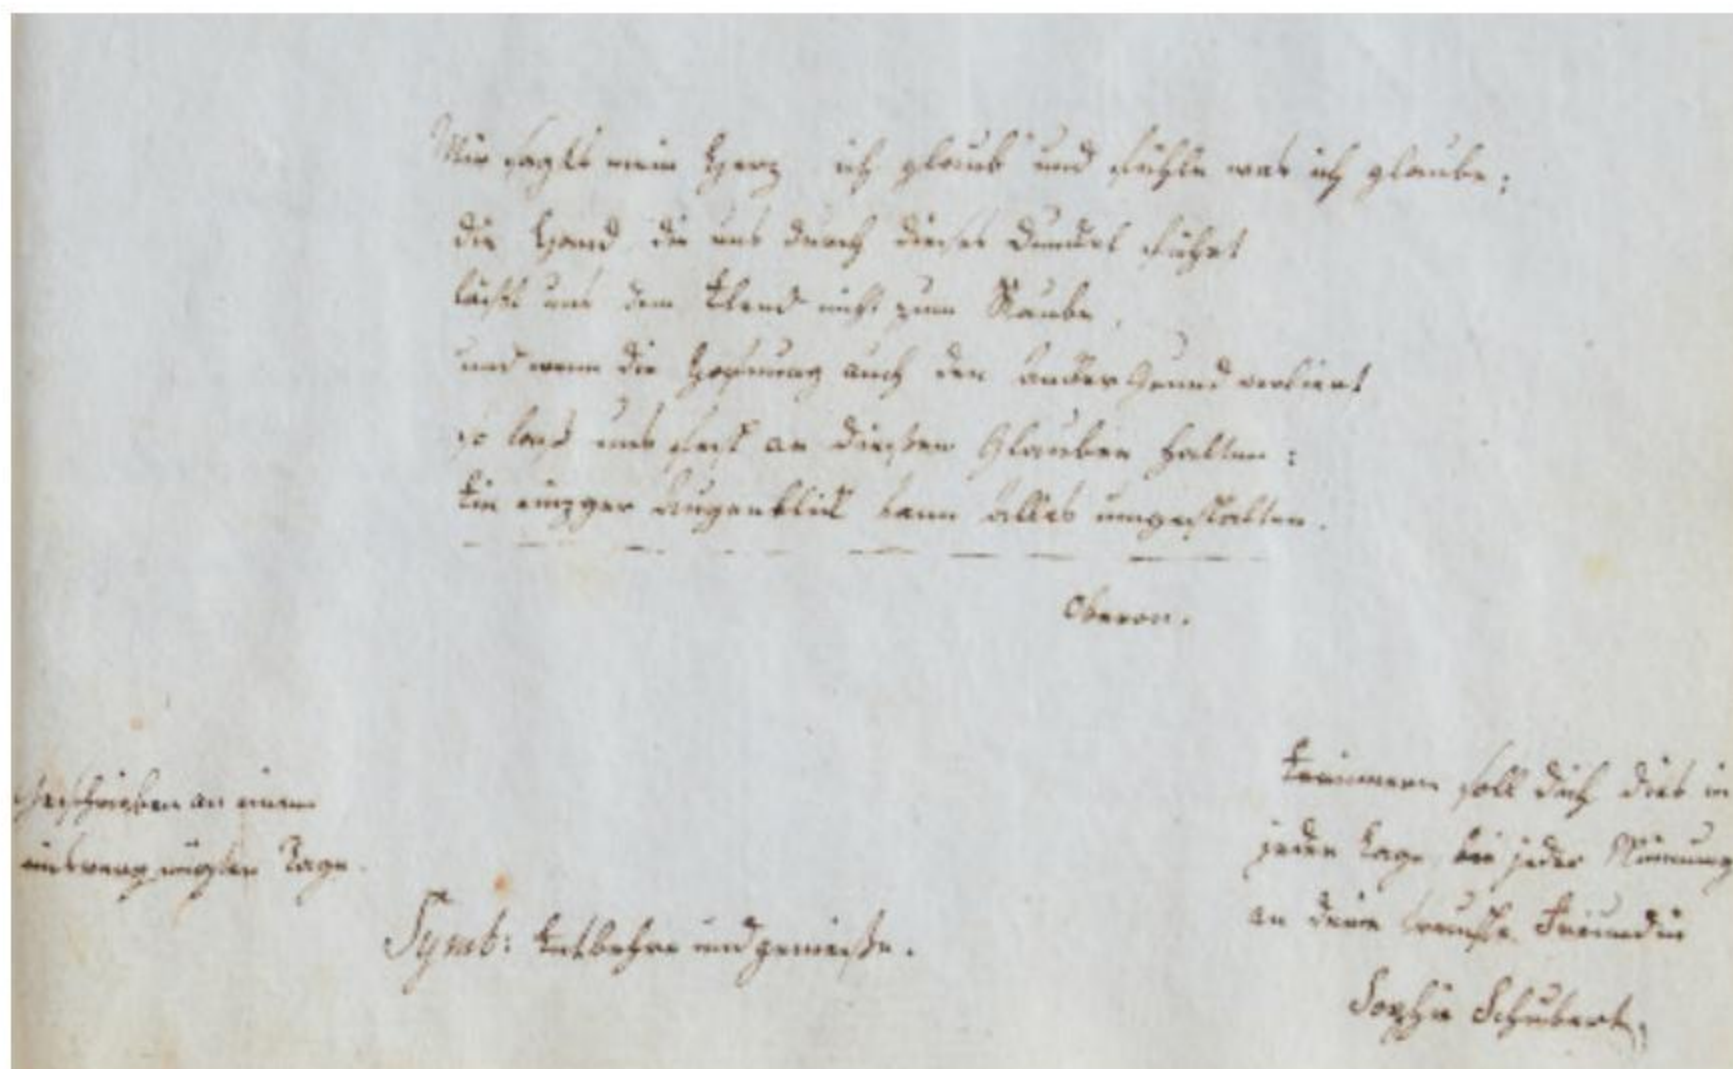 Mir sagts mein Herz ich glaub' und fühle was ich glaube;
die Hand die uns durch dieses Dunckel führt
läßt uns dem Elend nicht zum Raube,
und wenn die Hofnung auch den Ancker Grund verliert
so laß uns fest an diesem Glauben halten:
Ein einzger Augenblick kann alles umgestalten.
Oberon.
Geschrieben an einem
mißvergnügten Tage.
Symb: Entbehre und genieße.
Erinnern soll dich dies in
jeder Lage, bei jeder
an deine treuste Freundin
Sophie Schubert.